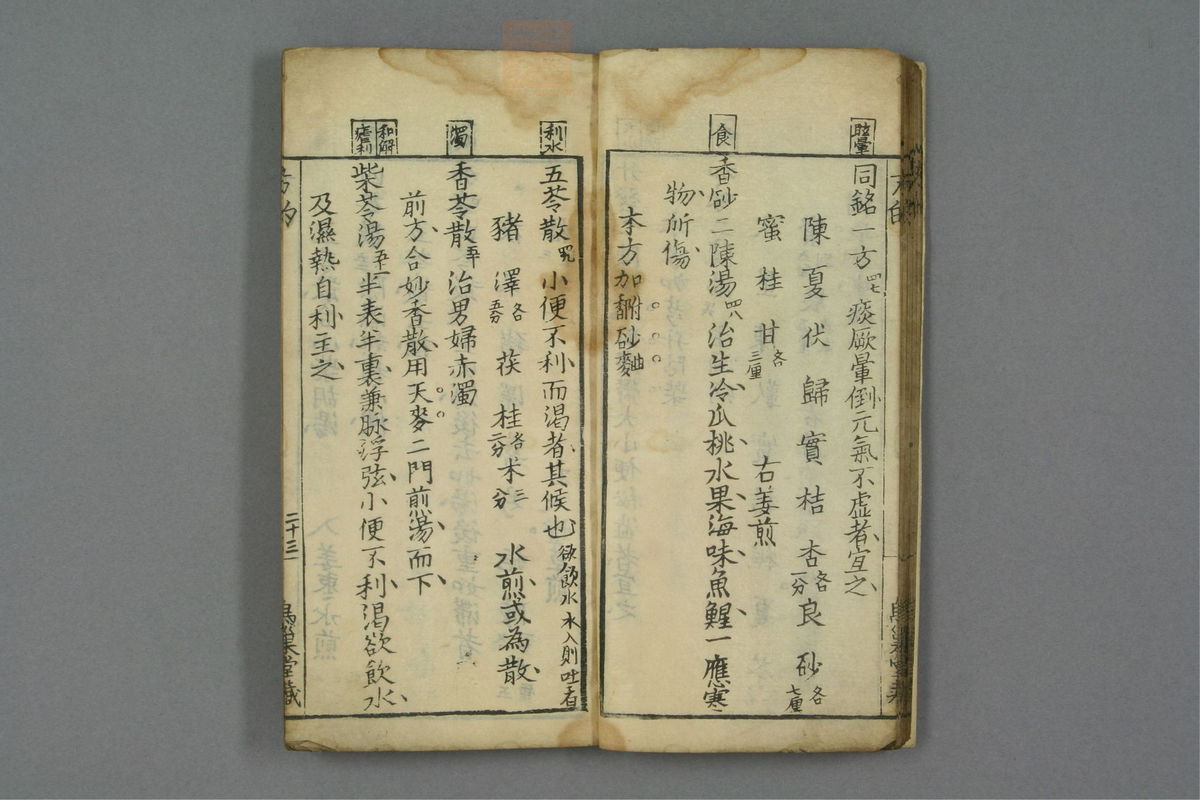 眩暈
同銘一方 四七 痰厥暈倒元氣不虚者宜之
陳夏伏歸實桔杏各一分良砂各七厘
蜜桂甘各三厘 右姜煎
食
香砂二陳湯 四八 治生冷瓜桃水果海味魚鯹一應寒
物所傷
本方加附砂麥曲
利水
五苓散 四九 小便不利而渇者其候也 欲飲水水入則吐者
豬澤各五分茯桂各二分朮三分 水煎或為散
濁
香苓散 五十 治男婦赤濁
前方合妙香散用天麥二門煎湯而下
和解
瘧利
柴苓湯 五十一 半表半裏兼脉浮弦小便不利渇欲飲水
及濕熱自利主之
二十三